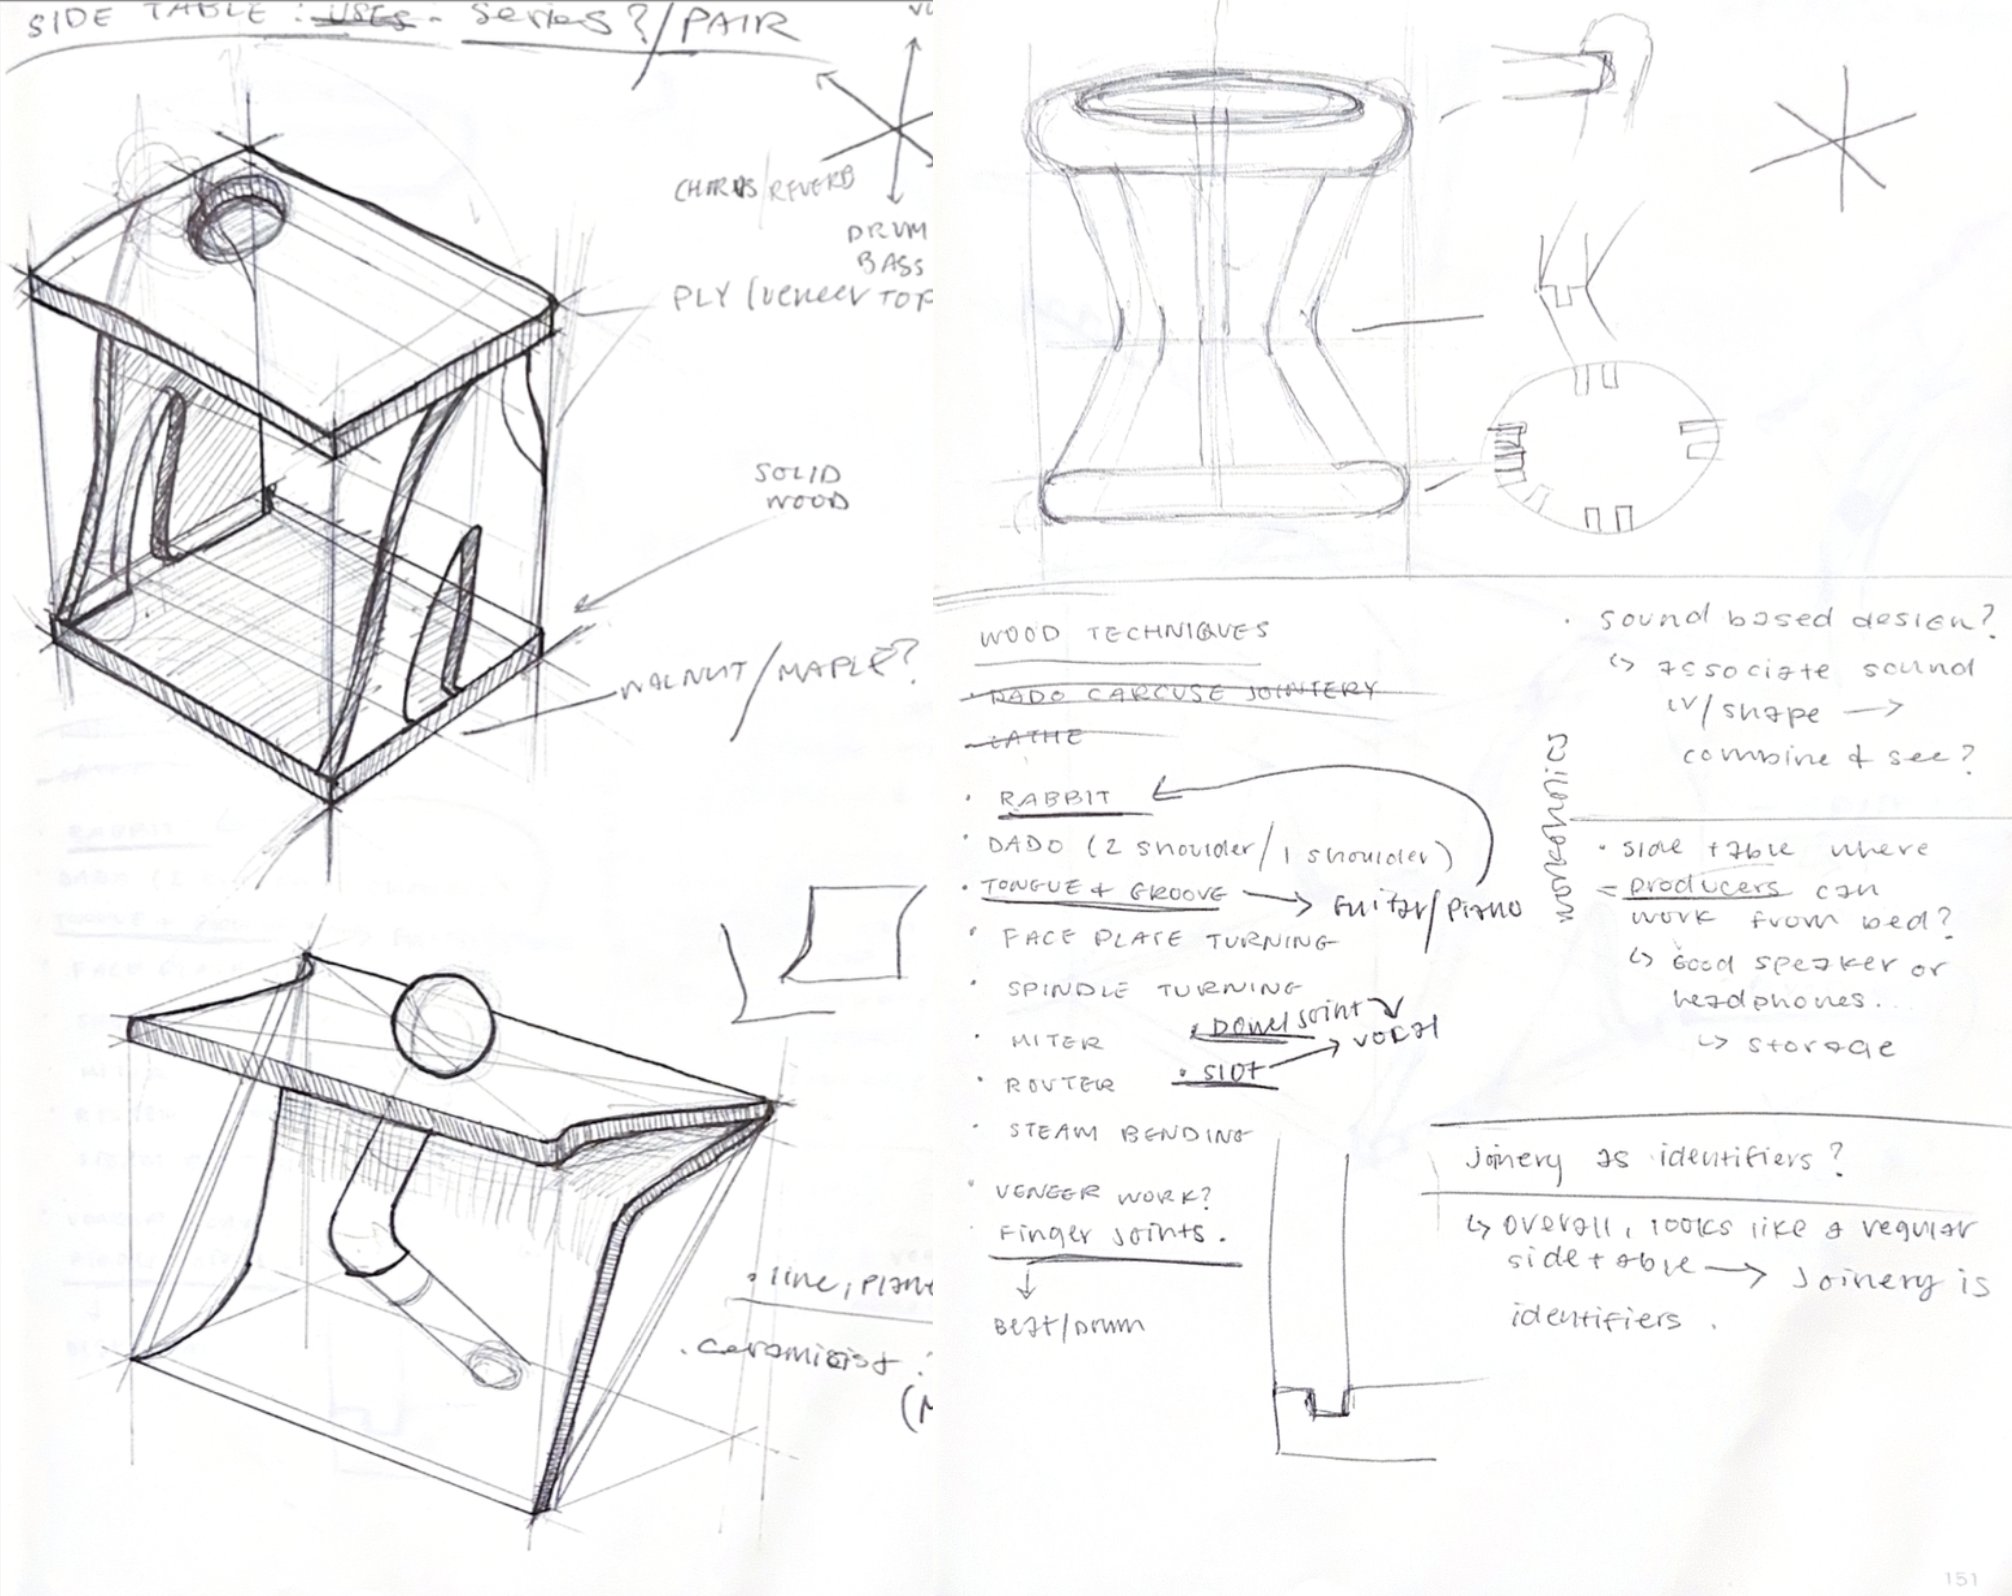 SIDE TABLE : USES. Series? / PAIR
CHORDS/REVERB
DRUM
BASS
PLY (veneer TOP
SOLID
WOOD
WALNUT / MAPLE?
• line, plane
. ceramicist
WOOD TECHNIQUES
• DADO CARCUSE JOINTERY
• LATHE
• RABBIT
• DADO (2 shoulder / 1 shoulder)
• TONGUE + GROOVE → Guitar/Piano
• FACE PLATE TURNING
• SPINDLE TURNING
• MITER
• Dowel joint
→ vocal
• ROUTER
• Slot
• STEAM BENDING
• VENEER WORK?
• Finger joints.
↓
Beat/Drum
• sound based design?
↳ associate sound
w/shape →
combine & see?
• side table where
= producers can
work from bed?
↳ Good speaker or
headphones.
↳ storage
joinery as identifiers?
↳ overall, looks like a regular
side table → Joinery is
identifiers.
151